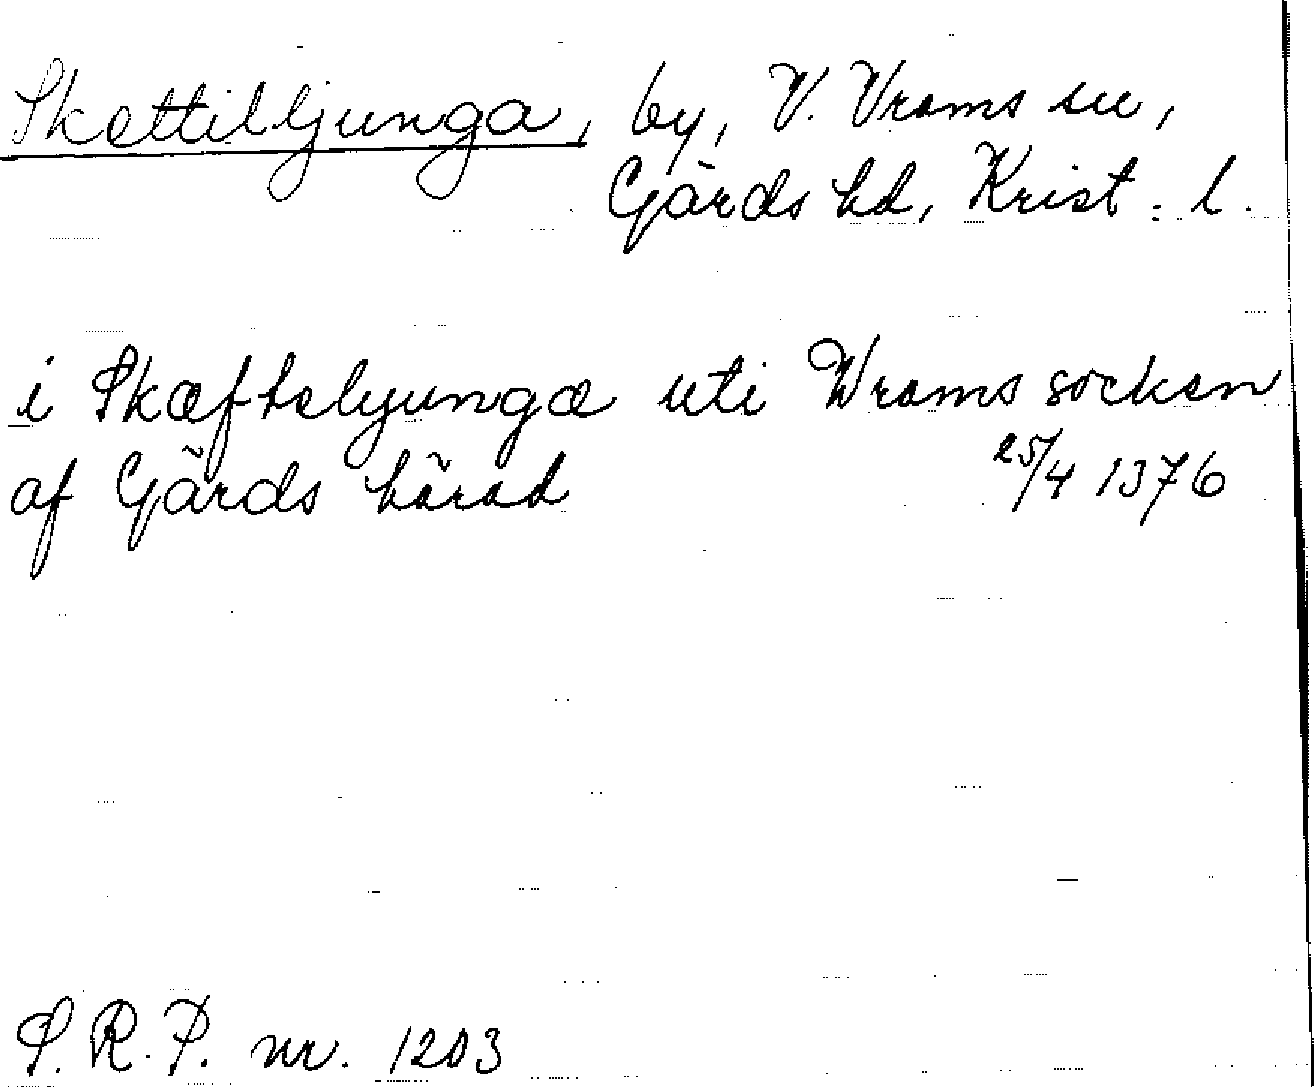 Skättilljunga, by, V. Vrams sn,
Gärds hd, Krist. l.
i Skæftelyunga uti Wrams socken
af Gärds härad 25/4 1376
S. R. P. nr. 1203